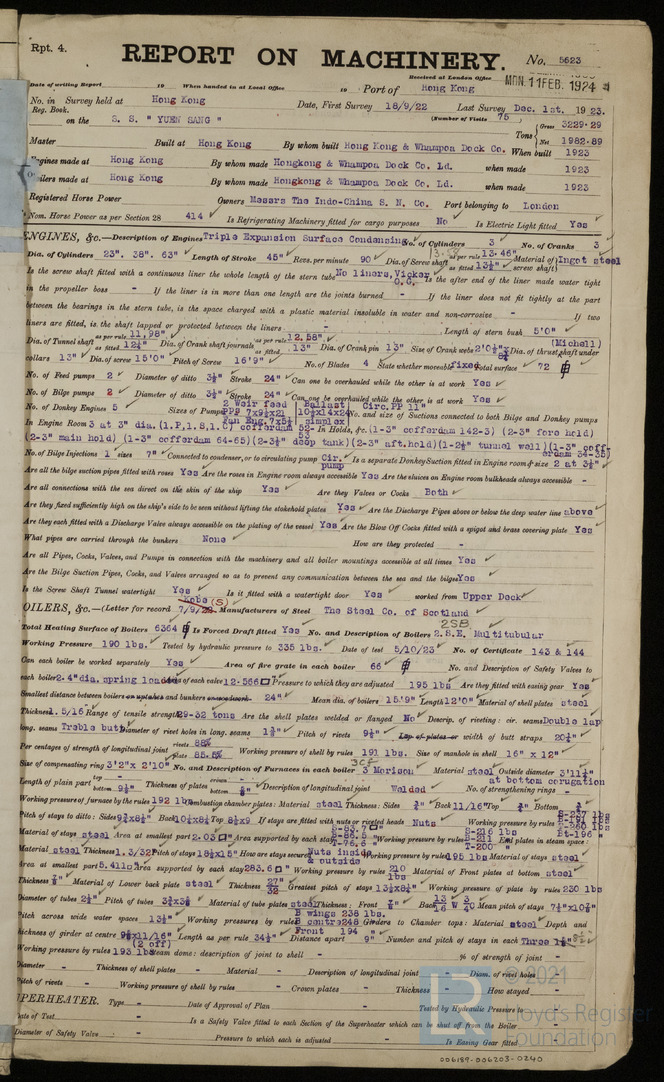 Rpt. 4.
REPORT ON MACHINERY.
No. 5623
Received at London Office
MON. 11 FEB. 1924
Date of writing Report 19 When handed in at Local Office 19 Port of Hong Kong
No. in Survey held at Hong Kong Date, First Survey 18/9/22 Last Survey Dec. 1st. 1923.
Reg. Book. (Number of Visits 75
on the S. S. " YUEN SANG " Tons Gross 3229.29 Net 1982.89
Master Built at Hong Kong By whom built Hong Kong & Whampoa Dock Co. When built 1923
Engines made at Hong Kong By whom made Hongkong & Whampoa Dock Co. Ld. when made 1923
Boilers made at Hong Kong By whom made Hongkong & Whampoa Dock Co. Ld. when made 1923
Registered Horse Power Owners Messrs The Indo-China S. N. Co. Port belonging to London
Nom. Horse Power as per Section 28 414 Is Refrigerating Machinery fitted for cargo purposes No Is Electric Light fitted Yes
ENGINES, &c.—Description of Engines Triple Expansion Surface Condensing No. of Cylinders 3 No. of Cranks 3
Dia. of Cylinders 23". 38". 63" Length of Stroke 45" Revs. per minute 90 Dia. of Screw shaft as per rule 13.46" as fitted 13½" Material of screw shaft Ingot steel
Is the screw shaft fitted with a continuous liner the whole length of the stern tube No liners, Vicker O.G. Is the after end of the liner made water tight
in the propeller boss - If the liner is in more than one length are the joints burned - If the liner does not fit tightly at the part
between the bearings in the stern tube, is the space charged with a plastic material insoluble in water and non-corrosive - If two
liners are fitted, is the shaft lapped or protected between the liners - Length of stern bush 5'0"
Dia. of Tunnel shaft as per rule 11.98" as fitted 12¼" Dia. of Crank shaft journals as per rule 12.58" as fitted 13" Dia. of Crank pin 13" Size of Crank webs Dia. of thrust shaft under (Michell)
collars 13" Dia. of screw 15'0" Pitch of Screw 16'9" No. of Blades 4 State whether moveable fixed Total surface 72
No. of Feed pumps 2 Diameter of ditto 3½" Stroke 24" Can one be overhauled while the other is at work Yes
No. of Bilge pumps 2 Diameter of ditto 3½" Stroke 24" Can one be overhauled while the other is at work Yes
No. of Donkey Engines 5 Sizes of Pumps 2 Weir feed Ballast Circ. PP 11" No. and size of Suctions connected to both Bilge and Donkey pumps
In Engine Room 3 at 3" dia. In Holds, &c. (1-3" cofferdam 142-3) (2-3" fore hold)
(2-3" main hold) (1-3" cofferdam 64-65) (2-3½" deep tank) (2-3" aft.hold) (1-2½" tunnel well) (1-3" cofferdam 34-35)
No. of Bilge Injections 1 sizes 7" Connected to condenser, or to circulating pump Cir. pump Is a separate Donkey Suction fitted in Engine room & size 2 at 3½"
Are all the bilge suction pipes fitted with roses Yes Are the roses in Engine room always accessible Yes Are the sluices on Engine room bulkheads always accessible -
Are all connections with the sea direct on the skin of the ship Yes Are they Valves or Cocks Both
Are they fixed sufficiently high on the ship's side to be seen without lifting the stokehold plates Yes Are the Discharge Pipes above or below the deep water line above
Are they each fitted with a Discharge Valve always accessible on the plating of the vessel Yes Are the Blow Off Cocks fitted with a spigot and brass covering plate Yes
What pipes are carried through the bunkers None How are they protected -
Are all Pipes, Cocks, Valves, and Pumps in connection with the machinery and all boiler mountings accessible at all times Yes
Are the Bilge Suction Pipes, Cocks, and Valves arranged so as to prevent any communication between the sea and the bilges Yes
Is the Screw Shaft Tunnel watertight Yes Is it fitted with a watertight door Yes worked from Upper Deck
BOILERS, &c.—(Letter for record (S) Manufacturers of Steel The Steel Co. of Scotland
2SB
Total Heating Surface of Boilers 6364 Is Forced Draft fitted Yes No. and Description of Boilers 2.S.E. Multitubular
Working Pressure 190 lbs. Tested by hydraulic pressure to 335 lbs. Date of test 5/10/23 No. of Certificate 143 & 144
Can each boiler be worked separately Yes Area of fire grate in each boiler 66 No. and Description of Safety Valves to
each boiler 2.4"dia. spring loaded Area of each valve 12.566 Pressure to which they are adjusted 195 lbs Are they fitted with easing gear Yes
Smallest distance between boilers or uptakes and bunkers or woodwork 24" Mean dia. of boilers 15'9" Length 12'0" Material of shell plates steel
Thickness 1.5/16 Range of tensile strength 29-32 tons Are the shell plates welded or flanged No Descrip. of riveting: cir. seams Double lap
long. seams Treble butt Diameter of rivet holes in long. seams 1⅜" Pitch of rivets 9¼" Lap of plates or width of butt straps 20¼"
Per centages of strength of longitudinal joint rivets 88% plate 85.5% Working pressure of shell by rules 191 lbs. Size of manhole in shell 16" x 12"
Size of compensating ring 3'2"x 2'10" No. and Description of Furnaces in each boiler 3 Morison Material steel Outside diameter 3'11¼" at bottom corrugation
Length of plain part top - bottom 9½" Thickness of plates crown bottom Description of longitudinal joint Welded No. of strengthening rings -
Working pressure of furnace by the rules 192 lbs Combustion chamber plates: Material steel Thickness: Sides Back 11/16" Top Bottom
Pitch of stays to ditto: Sides Back Top If stays are fitted with nuts or riveted heads Nuts Working pressure by rules
Material of stays steel Area at smallest part 2.03 Area supported by each stay Working pressure by rules End plates in steam space:
Material steel Thickness 1.3/32 Pitch of stays 18½x15" How are stays secured Nuts inside & outside Working pressure by rules 195 lbs Material of stays steel
Area at smallest part 5.411 Area supported by each stay 283.6 Working pressure by rules 210 lbs Material of Front plates at bottom steel
Thickness Material of Lower back plate steel Thickness 27"/32 Greatest pitch of stays Working pressure of plate by rules 230 lbs
Diameter of tubes 2½" Pitch of tubes Material of tube plates steel Thickness: Front Back Mean pitch of stays
Pitch across wide water spaces 13½" Working pressures by rules B wings 238 lbs. B centre 248 Front 194 Girders to Chamber tops: Material steel Depth and
thickness of girder at centre (2 off) Length as per rule 34½" Distance apart 9" Number and pitch of stays in each Three
Working pressure by rules 193 lbs Steam dome: description of joint to shell - % of strength of joint -
Diameter - Thickness of shell plates - Material - Description of longitudinal joint - Diam. of rivet holes -
Pitch of rivets - Working pressure of shell by rules - Crown plates - Thickness - How stayed -
SUPERHEATER. Type - Date of Approval of Plan - Tested by Hydraulic Pressure to -
Date of Test - Is a Safety Valve fitted to each Section of the Superheater which can be shut off from the Boiler -
Diameter of Safety Valve - Pressure to which each is adjusted - Is Easing Gear fitted -
© 2021
Lloyd's Register
Foundation
006189-006203-0240